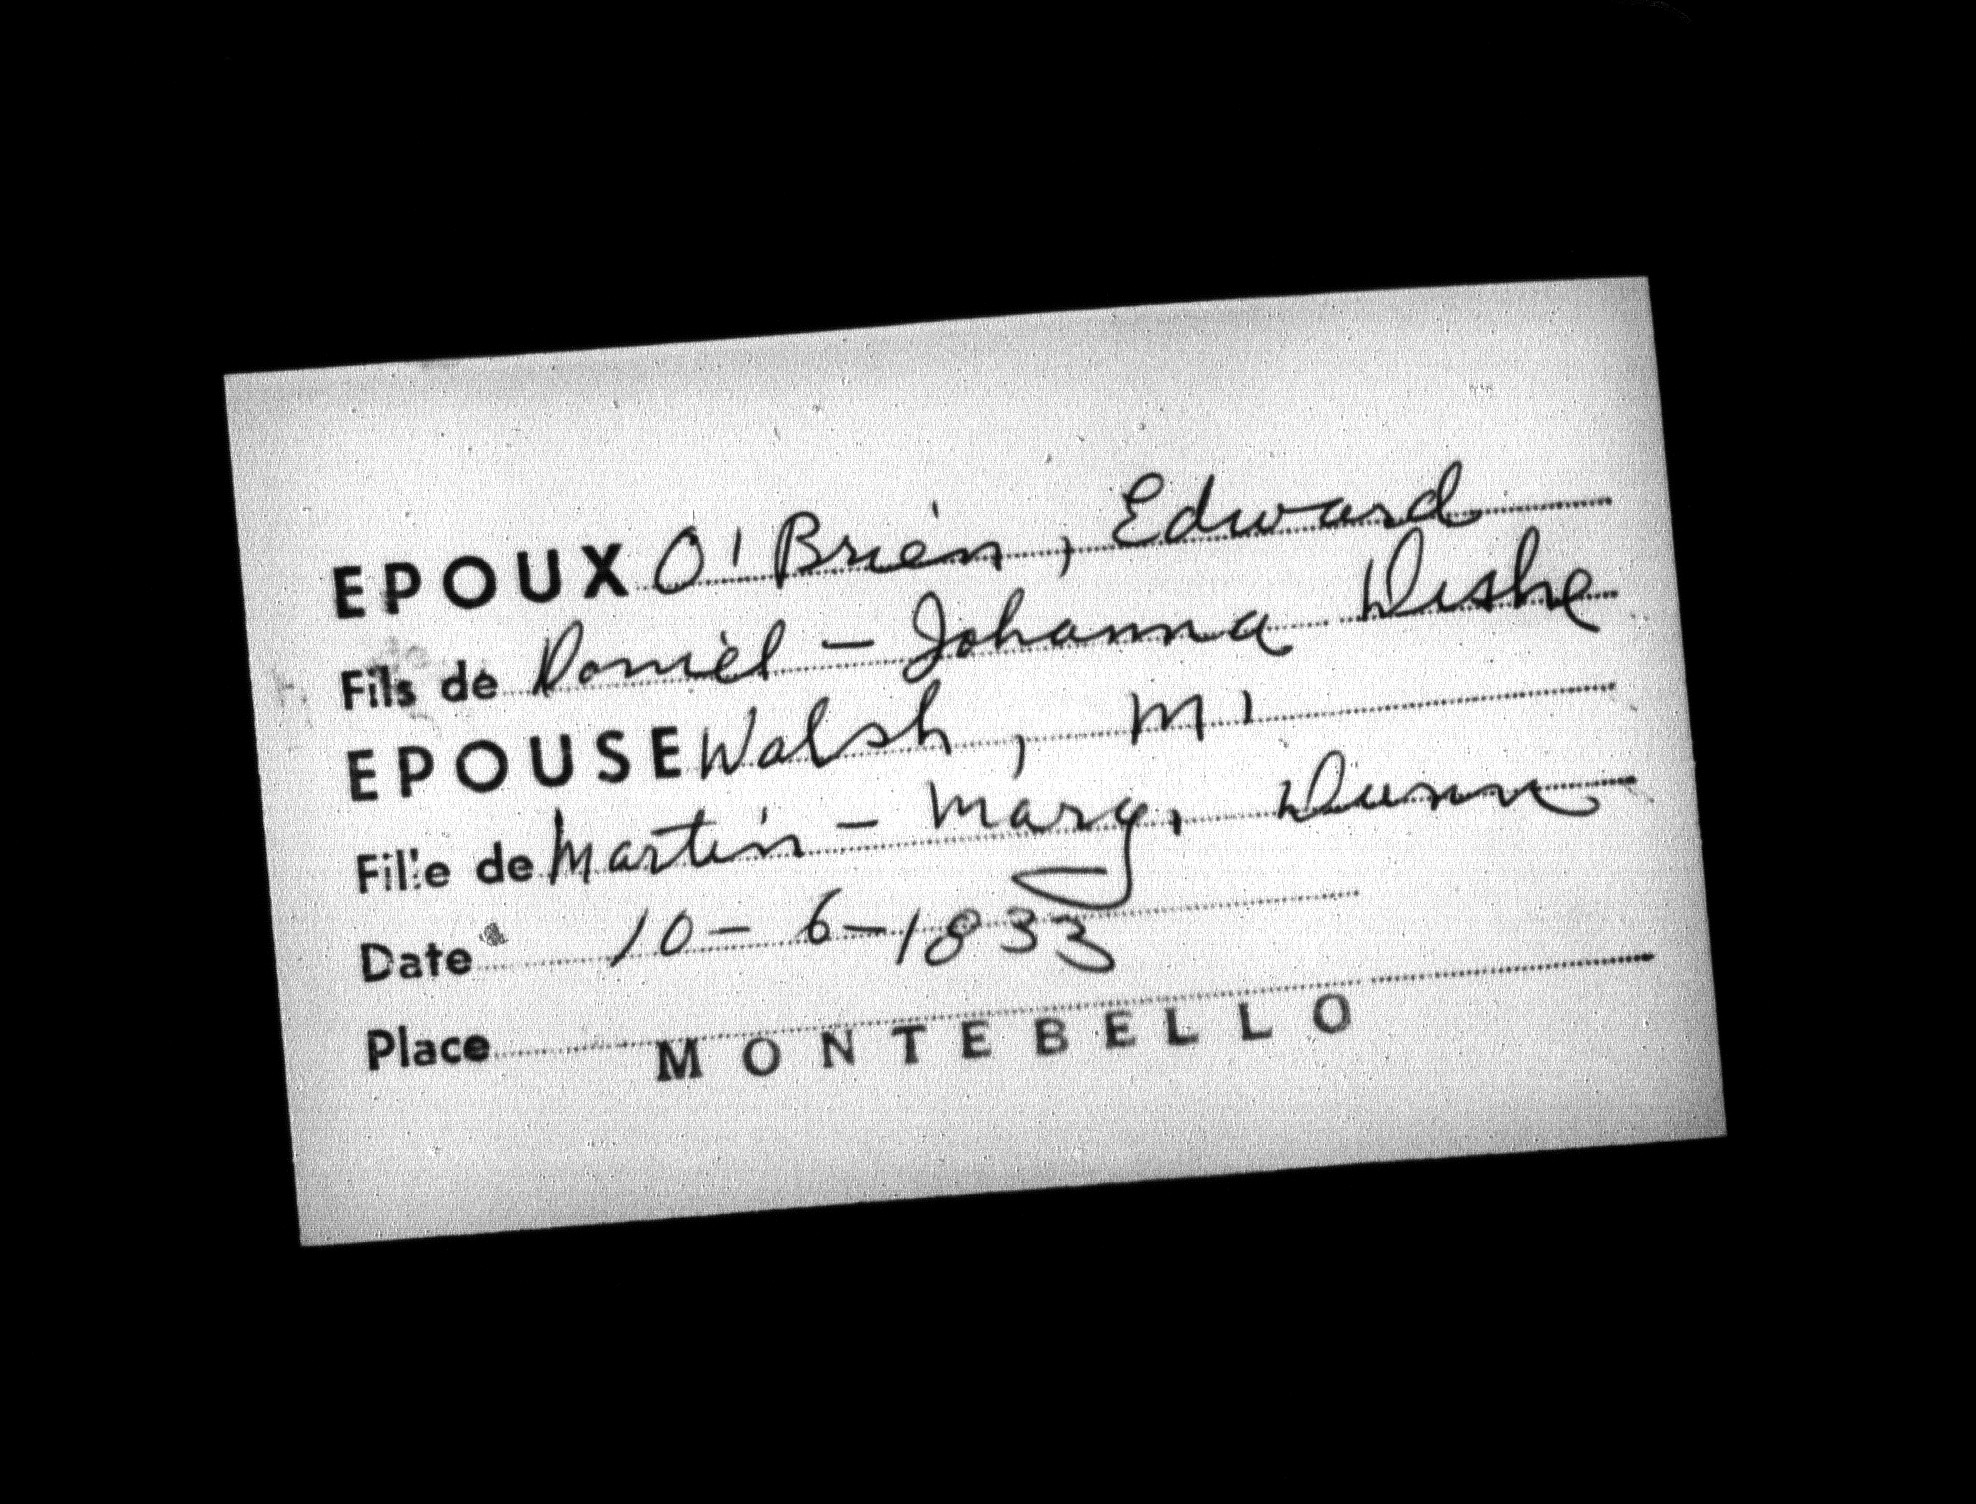 EPOUX O'Brien, Edward
Fils de Daniel - Johanna Dishe
EPOUSE Walsh, M.
Fille de Martin - Mary, Dunn
Date 10-6-1833
Place MONTEBELLO